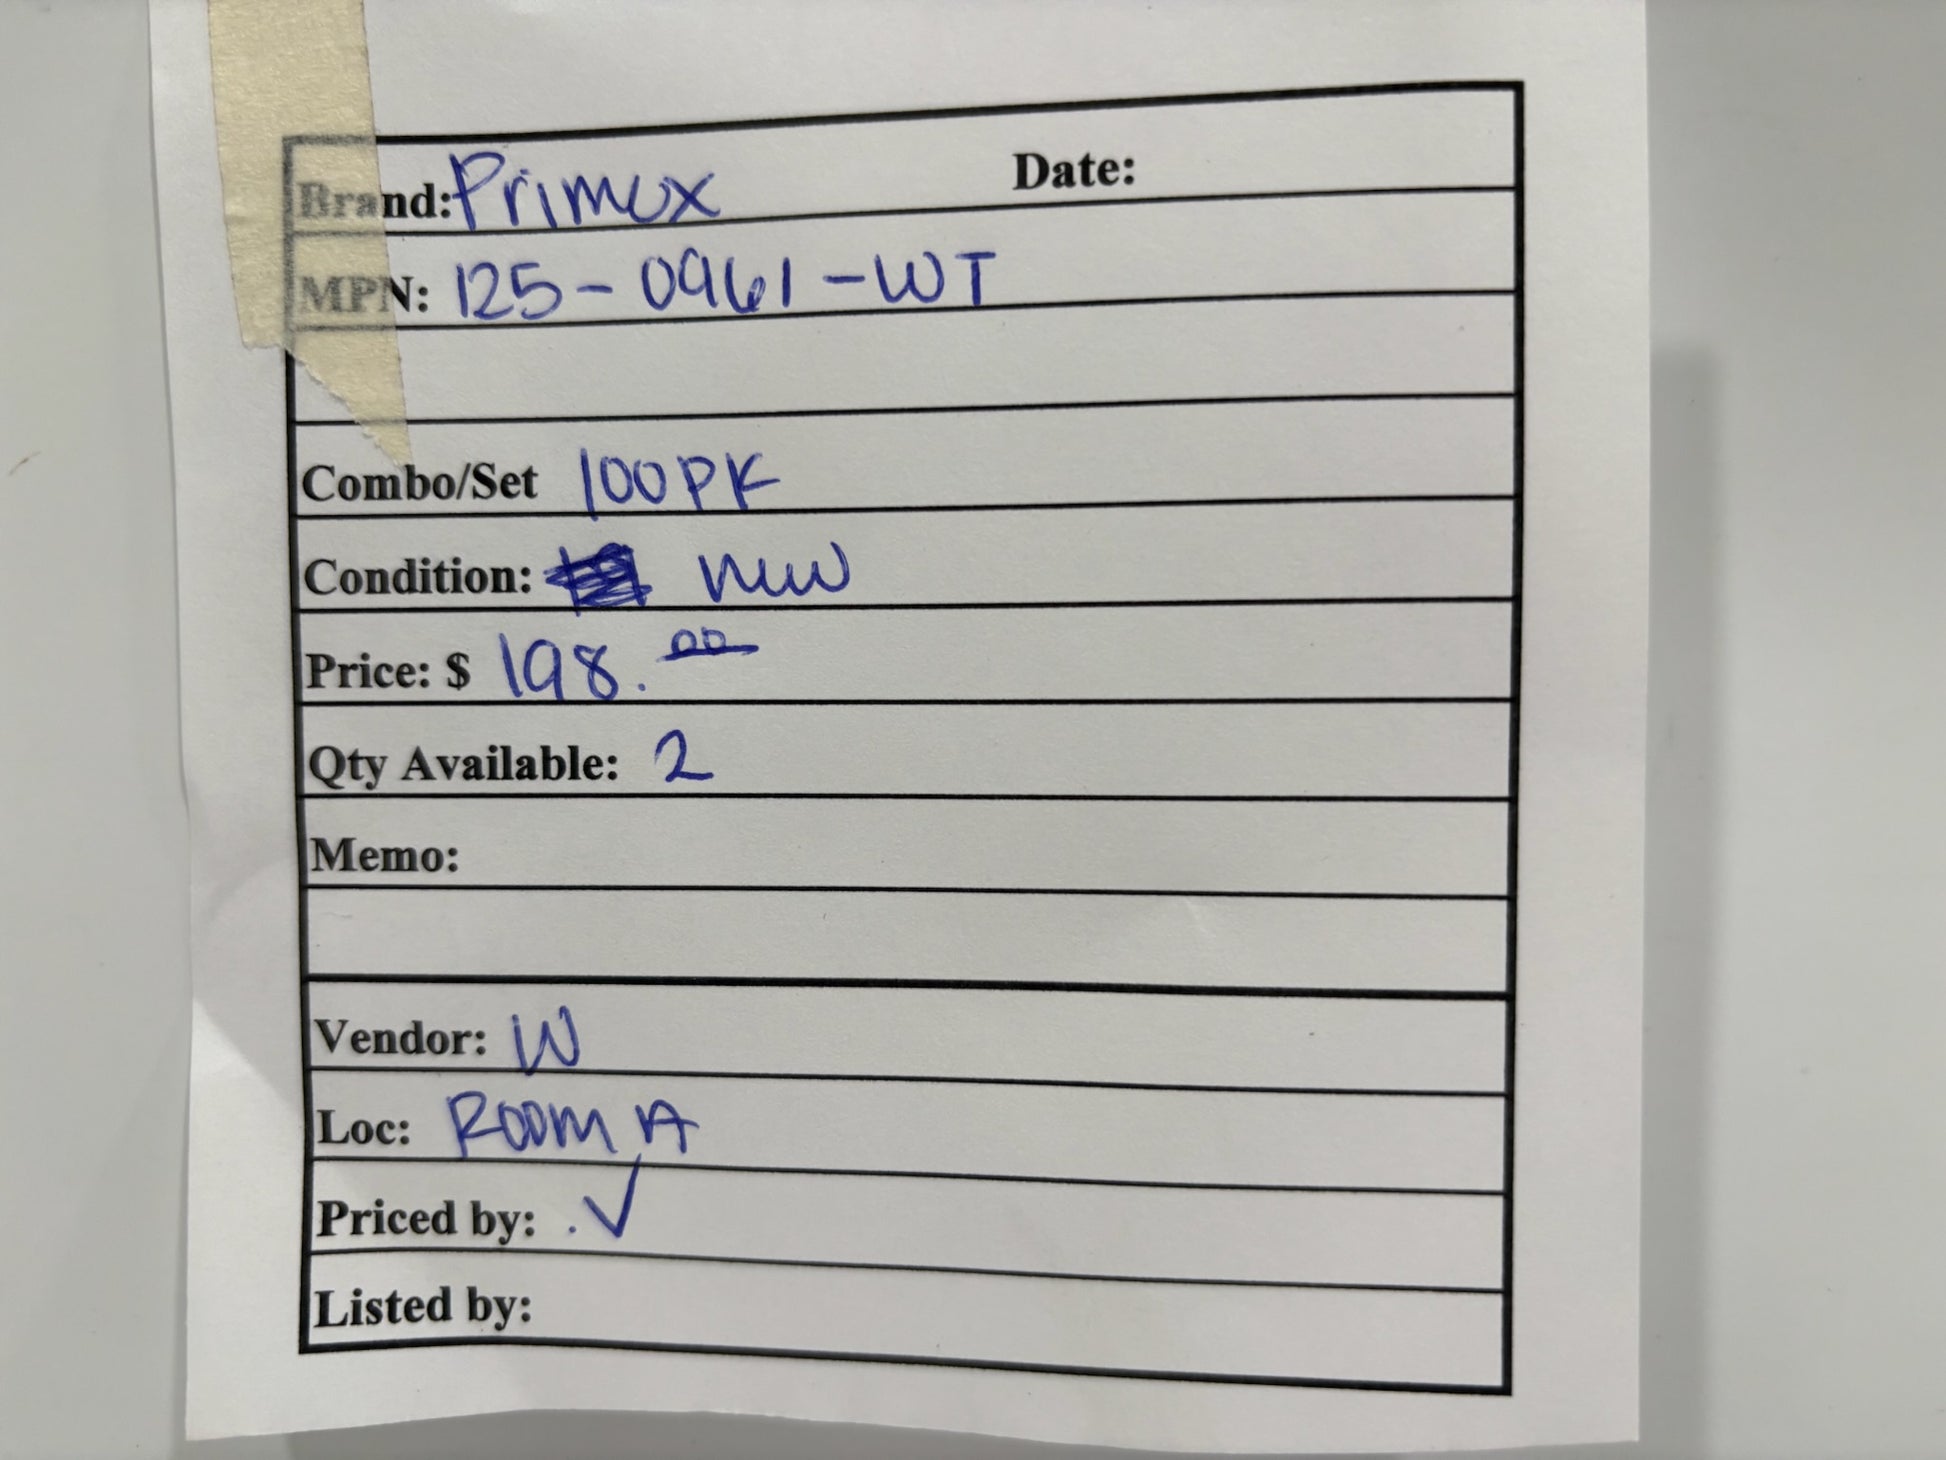 Brand: Primux Date:
MPN: 125-0961-WT
Combo/Set 100PK
Condition: new
Price: $ 198.00
Qty Available: 2
Memo:
Vendor: W
Loc: ROOM A
Priced by: . ✓
Listed by: